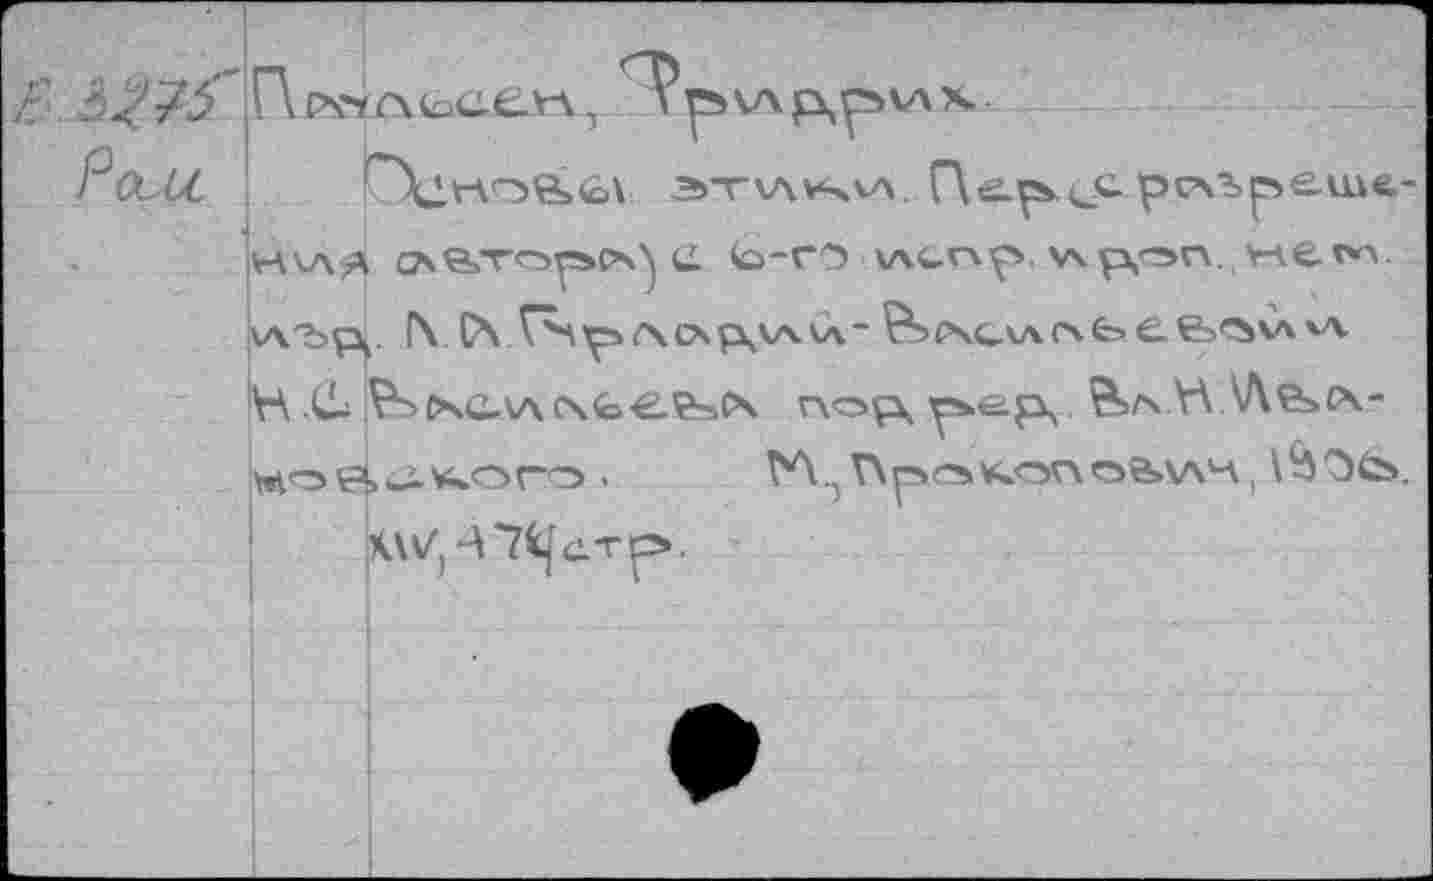 Е 3275 Паульсен, Фридрих.
Рац Основы этики. Пер. [с разреше-
ния автора] с 6-го испр. и доп. нем.
изд. Л.А. Гурлади и- Васильевой и
Н.С. Васильева под ред. Вл. Н. Ивa-
новского. М., Прокопович, 1906.
XIV, 479 стр.